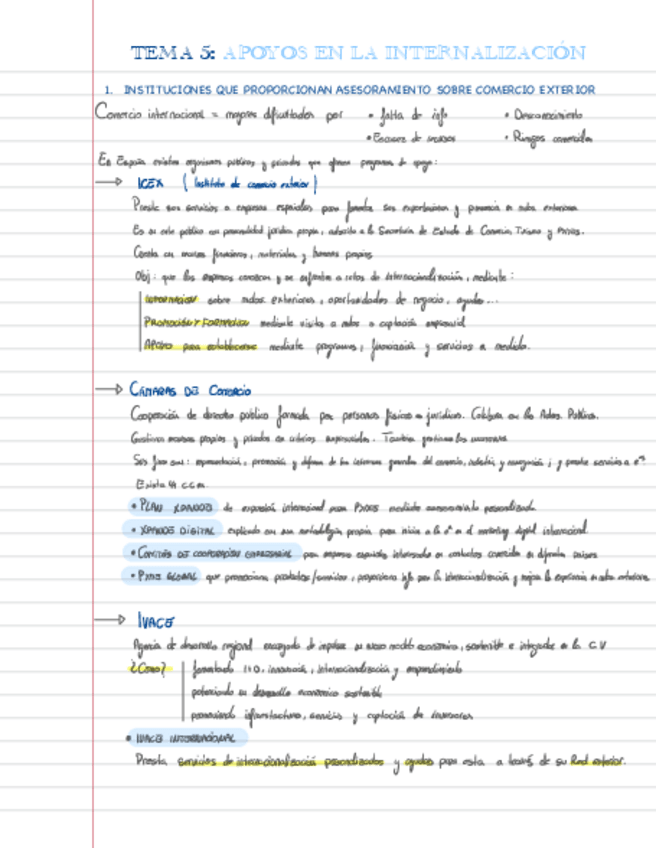 TEMA 5: APOYOS EN LA INTERNALIZACIÓN
1. INSTITUCIONES QUE PROPORCIONAN ASESORAMIENTO SOBRE COMERCIO EXTERIOR
Comercio internacional = mayores dificultades por • falta de info • Desconocimiento
• Escasez de recursos • Riesgos comerciales
En España existen organismos públicos y privados que ofrecen programas de apoyo:
→ ICEX (Instituto de comercio exterior)
Presta sus servicios a empresas españolas para fomentar sus exportaciones y presencia en mdos exteriores
Es un ente público con personalidad jurídica propia, adscrito a la Secretaría de Estado de Comercio, Turismo y PYMES.
Consta con recursos financieros, materiales y humanos propios
Obj: que las empresas conozcan y se enfrenten a retos de internacionalización, mediante:
INFORMACIÓN sobre mdos exteriores, oportunidades de negocio, ayudas...
PROMOCIÓN Y FORMACIÓN mediante visitas a mdos o captación empresarial
APOYO para establecerse mediante programas, financiación y servicios a medida.
→ CÁMARAS DE COMERCIO
Corporación de derecho público formada por personas físicas o jurídicas. Colabora con las Adm. Públicas.
Gestionan recursos propios y privados con criterios empresariales. También gestionan los
Sus funciones: representación, promoción y defensa de los intereses generales del comercio, industria y navegación; y presta servicios a
Existen
• PLAN XPANDE de expansión internacional para PYMES mediante asesoramiento personalizado
• XPANDE DIGITAL explicado con una metodología propia para iniciar a la en el marketing digital internacional
• COMITÉS DE COOPERACIÓN EMPRESARIAL para empresas españolas interesadas en contactos comerciales en diferentes países
• PYME GLOBAL que promociona productos/servicios, proporciona info para la internacionalización y mejora la experiencia en mdos exteriores
→ IVACE
Agencia de desarrollo regional encargada de impulsar un nuevo modelo económico, sostenible e integrador en la C.V
¿Cómo? fomentando I+D, innovación, internacionalización y emprendimiento
potenciando su desarrollo económico sostenible
promoviendo infraestructuras, servicios y captación de inversores
• IVACE INTERNACIONAL
Presta servicios de internacionalización personalizados y ayudas para esta a través de su Red exterior.